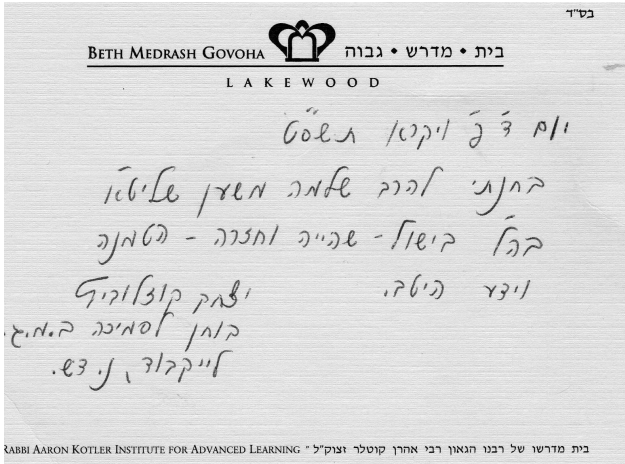 בס״ד
BETH MEDRASH GOVOHA בית • מדרש • גבוה
LAKEWOOD
יום ד׳ פ׳ ויקרא תשס״ט
בחנתי להרב שלמה משען שליט״א
בהל׳ בישול - שהייה וחזרה - הטמנה
וידע היטב.
יצחק קוצלוביץ
בוחן לסמיכה ב.מ.ג.
לייקבוד, נ. דש.
RABBI AARON KOTLER INSTITUTE FOR ADVANCED LEARNING • בית מדרשו של רבנו הגאון רבי אהרן קוטלר זצוק״ל